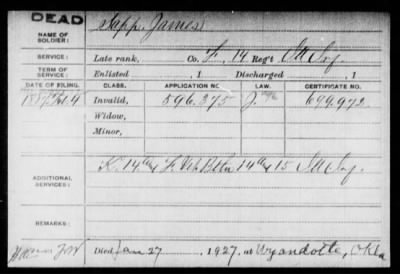 DEAD
NAME OF SOLDIER: Sapp, James
SERVICE: Late rank, Co. F, 14 Reg't Ill Inf.
TERM OF SERVICE: Enlisted , 1 Discharged , 1
DATE OF FILING. CLASS. APPLICATION NO. LAW. CERTIFICATE NO.
1887 Invalid, 596.375 699.972
Widow,
Minor,
ADDITIONAL SERVICES: K. 14 & F. Vet Battn 14 & 15 Ill Inf.
REMARKS:
Died Jan 27 , 1927, at Wyandotte, Okla